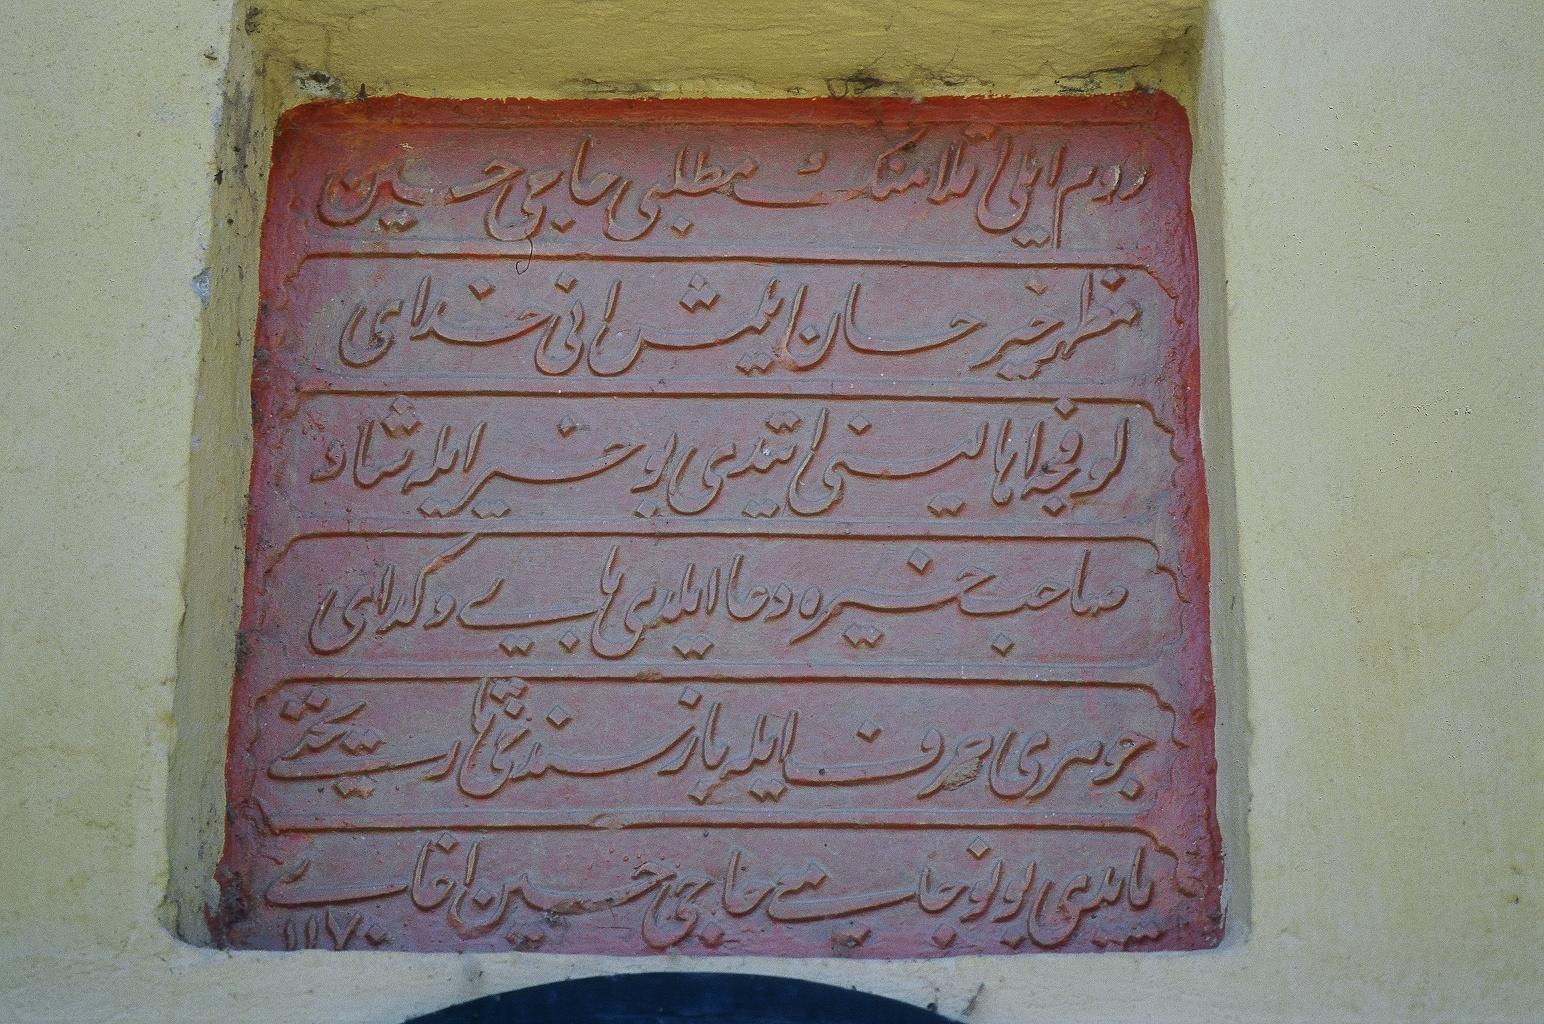 روم ایلی تلامنک مطلبی حاجی حسین
مظهر خیر حسان ایلمش انی خدای
لوفجه اهالیسنی ایتدی بو خیر ایله شاد
صاحب خیره دعا ایلدی هب بی و کدای
جوهری حرف ایله یاز سندخی تاریخنی
یابدی بو نوجامعی حاجی حسین اغای
۱۱۷۰